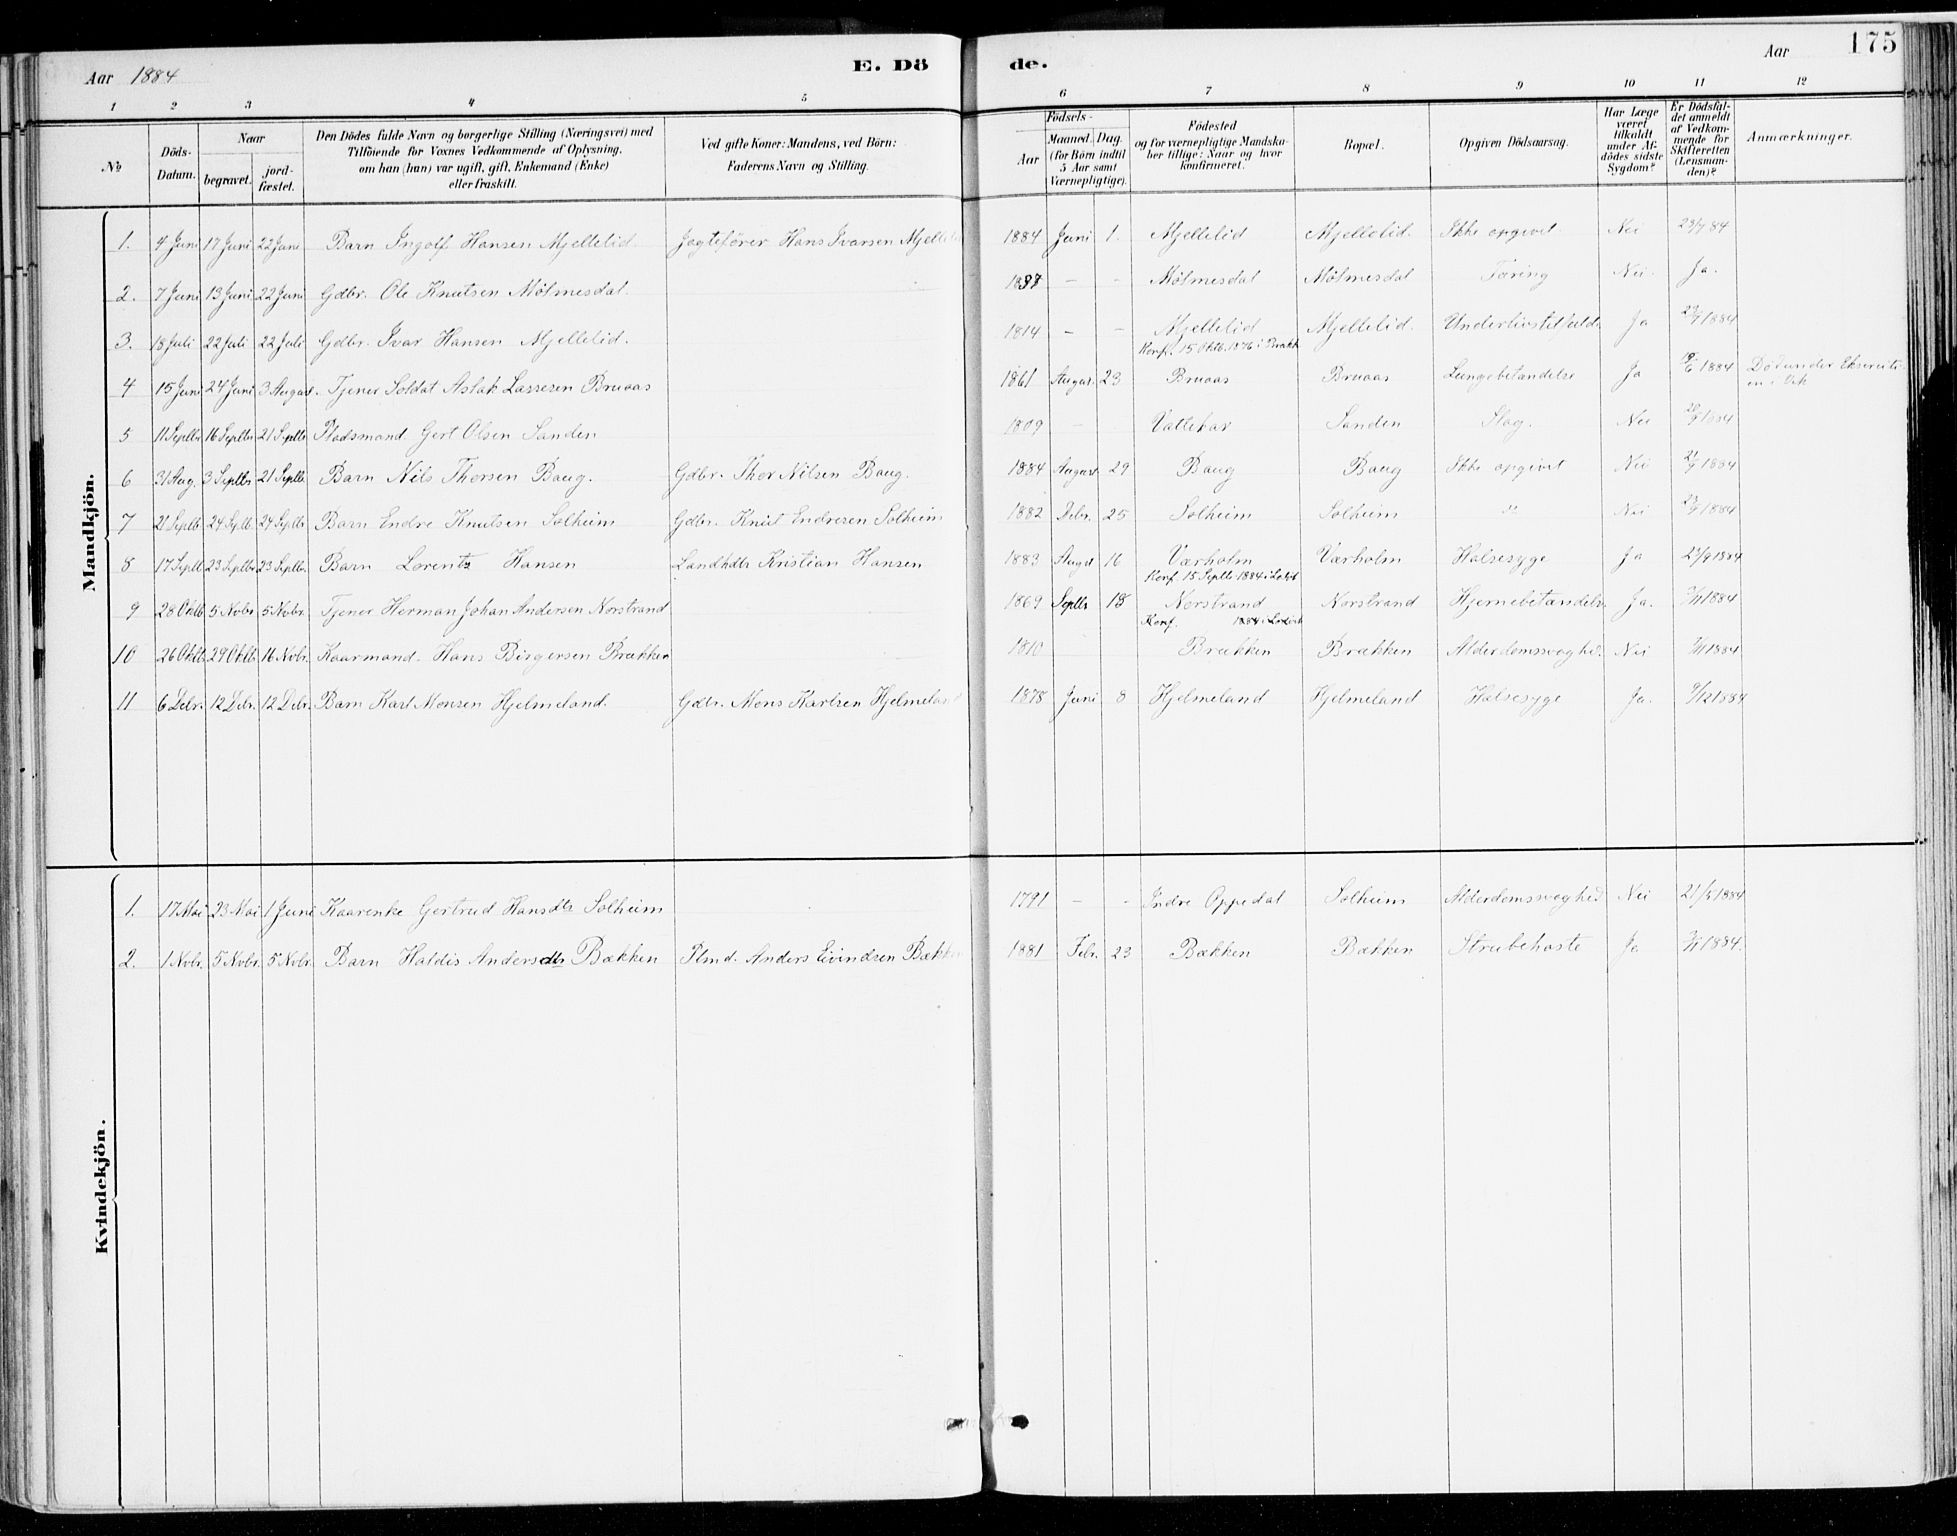 Aar 1884 E. Dö de. Aar 175
1 2 3 4 5 6 7 8 9 10 11 12
No
Döds-Datum.
Naar
begravet.
jord-fæstet.
Den Dödes fulde Navn og borgerlige Stilling (Næringsvei) med
Tilföiende for Voxnes Vedkommende af Oplysning,
om han (hun) var ugift, gift, Enkemand (Enke)
eller fraskilt.
Ved gifte Koner: Mandens, ved Börn:
Faderens Navn og Stilling.
Födsels-
Aar
Maaned. Dag.
(for Börn indtil
5 Aar samt
Værnepligtige).
Födested
og for værnepligtige Mandska-
ber tillige: Naar og hvor
konfirmeret.
Bopæl.
Opgiven Dödsaarsag.
Har Læge
været
tilkaldt
under Af-
dödes sidste
Sygdom?
Er Dödsfal-
det anmeldt
af Vedkom-
mende for
Skifteretten
(Lensman-
den)?
Anmærkninger.
Mandkjön.
1. 4 Juni 17 Juni 22 Juni Barn Ingolf Hansen Mjellelid Jagtefører Hans Ivarsen 1884 Juni 1. Mjellelid Mjellelid. Ikke opgivet Nei 23/7 84
2. 7 Juni 13 Juni 22 Juni Gdbr. Ole Knutsen Mölmesdal. - - Mölmesdal Mölmesdal Tæring Nei. Ja.
3. 18 Juli 22 Juli 22 Juli Gdbr. Ivar Hansen Mjellelid. 1814 - - Mjellelid Mjellelid. Ja
Konf. 15 Oktb. 1876 i
4 15 Juni 24 Juni 3 August. Tjener Soldat Aslak Lassesen Bruaas 1861 August 23 Bruaas Bruaas Lungebetændelse Ja 1884 Död under
5 11 Septbr 16 Septbr 21 Septb Pladsmand Gert Olsen Sanden 1809 - - Sanden Slag. Nei 1884
6 31 Aug. 3 Septbr 21 Septb Barn Nils Thorsen Baug. Gdbr. Thor Nilsen Baug. 1884 August 29 Baug Baug Ikke opgivet Nei 1884
7 21 Septb 24 Septb 24 Septb Barn Endre Knutsen Solheim Gdbr. Knut Endresen Solheim 1882 Debr. 25 Solheim Solheim do Nei 1884
8 17 Septb 23 Septbr 23 Septbr. Barn Lorents Hansen Landhdlr Kristian Hansen 1883 Augst 16 Værholm Værholm Halsesyge Ja 23/9 1884
Konf. 15 Septb 1884 i
9 28 Oktb 5 Novbr. 5 Novbr. Tjener Herman Johan Andersen Norstrand 1869 Septbr 18 Norstrand Norstrand Hjernebetændelse Ja. 1884
Konf. 1884 i
10 26 Oktb 29 Oktb 16 Nvbr. Kaarmand. Hans Birgersen Brækken 1810 Brækken Brækken Alderdomssvaghed. Nei 1884
11 6 Debr. 12 Debr. 12 Debr. Barn Karl Monsen Hjelmeland. Gdbr. Mons Karlsen Hjelmeland 1878 Juni 8 Hjelmeland Hjelmeland Halsesyge Ja. 9/12 1884
Kvindekjön.
1. 17 Mai 23 Mai 1 Juni Kaarenke Gertrud Hansdtr Solheim 1791 - - Indre Oppedal Solheim Alderdomssvaghed Nei 21/5 1884
2. 1 Nvbr. 5 Nvbr. 5 Nvbr. Barn Haldis Andersdtr Bækken Plmd. Anders Eivindsen Bækken 1881 Febr. 23 Bækken Bækken Strubehoste Ja 1884.